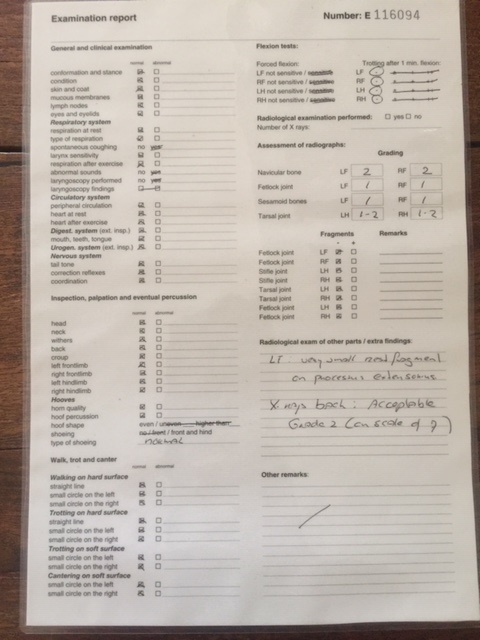 Examination report
Number: E 116094
General and clinical examination
normal abnormal
conformation and stance
condition
skin and coat
mucous membranes
lymph nodes
eyes and eyelids
Respiratory system
respiration at rest
type of respiration
spontaneous coughing no yes
larynx sensitivity
respiration after exercise
abnormal sounds no yes
laryngoscopy performed no yes
laryngoscopy findings
Circulatory system
peripheral circulation
heart at rest
heart after exercise
Digest. system (ext. insp.)
mouth, teeth, tongue
Urogen. system (ext. insp.)
Nervous system
tail tone
correction reflexes
coordination
Inspection, palpation and eventual percussion
normal abnormal
head
neck
withers
back
croup
left frontlimb
right frontlimb
left hindlimb
right hindlimb
Hooves
horn quality
hoof percussion
hoof shape even / uneven higher than
shoeing no / front / front and hind
type of shoeing normal
Walk, trot and canter
normal abnormal
Walking on hard surface
straight line
small circle on the left
small circle on the right
Trotting on hard surface
straight line
small circle on the left
small circle on the right
Trotting on soft surface
small circle on the left
small circle on the right
Cantering on soft surface
small circle on the left
small circle on the right
Flexion tests:
Forced flexion: Trotting after 1 min. flexion:
LF not sensitive / sensitive LF -
RF not sensitive / sensitive RF -
LH not sensitive / sensitive LH -
RH not sensitive / sensitive RH -
Radiological examination performed: yes no
Number of X rays:
Assessment of radiographs:
Grading
Navicular bone LF 2 RF 2
Fetlock joint LF 1 RF 1
Sesamoid bones LF 1 RF 1
Tarsal joint LH 1-2 RH 1-2
Fragments Remarks
- +
Fetlock joint LF
Fetlock joint RF
Stifle joint LH
Stifle joint RH
Tarsal joint LH
Tarsal joint RH
Fetlock joint LH
Fetlock joint RH
Radiological exam of other parts / extra findings:
LF very small fragment
on processus extensorius
X-rays back: Acceptable
Grade 2 (on scale of
Other remarks: